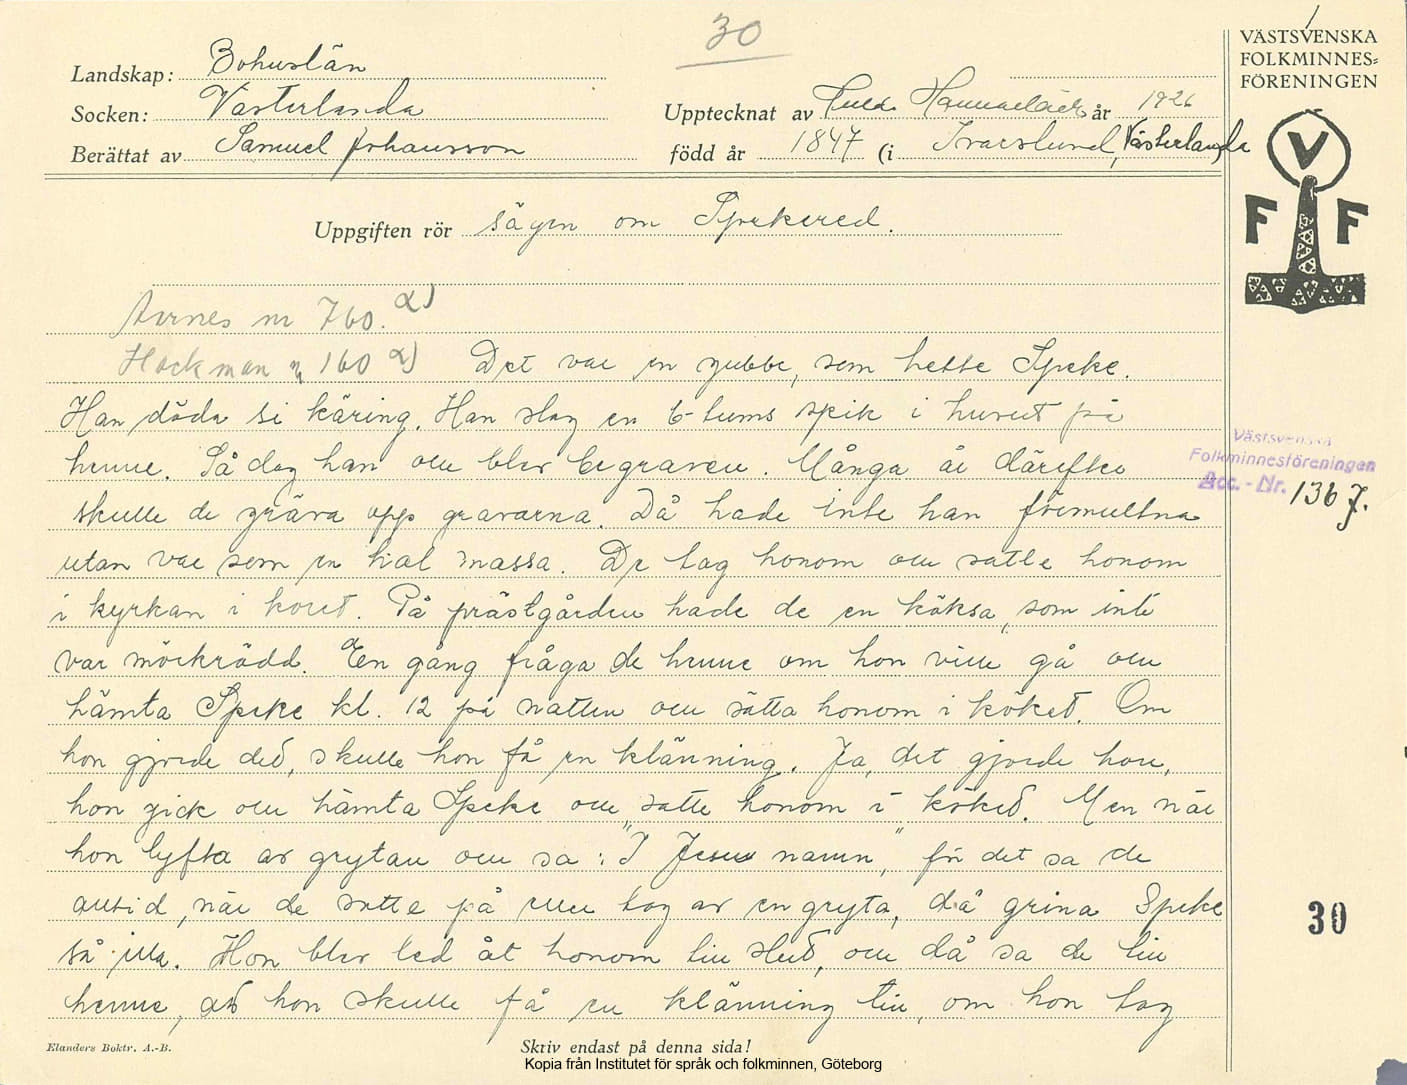 30
VÄSTSVENSKA
FOLKMINNES=
FÖRENINGEN
Landskap: Bohuslän
Socken: Västerlanda
Upptecknat av år 1926
Berättat av Samuel Johansson
född år 1847 (i Ivarslund, Västerlanda
V
F F
Uppgiften rör sägen om Spekered.
Aarnes nr 760. a)
Hackman nr 160 a) Det var en gubbe, som hette Speke.
Han döda si käring. Han slog en 6-tums spik i huvut på
henne. Så dog han ou blev begraven. Många år därefter
skulle de gräva opp gravarna. Då hade inte han förmultna
utan var som en hial massa. De tog honom ou satte honom
i kyrkan i koret. På prästgården hade de en köksa, som inte
var mörkrädd. En gång fråga de henne om hon ville gå ou
hämta Speke kl. 12 på natten ou sätta honom i köket. Om
hon gjorde ded, skulle hon få en klänning. Ja, det gjorde hon,
hon gick ou hämta Speke ou satte honom i köked. Men när
hon lyfta av grytan ou sa: "I Jesu namn", för det sa de
alltid, när de satte på eller tog av en gryta, då grina Speke
så illa. Hon blev led åt honom till slut, ou då sa de till
henne, att hon skulle få en klänning till, om hon tog
Västsvenska
Folkminnesföreningen
Acc.-Nr. 136 7.
30
Elanders Boktr. A.-B.
Skriv endast på denna sida!
Kopia från Institutet för språk och folkminnen, Göteborg